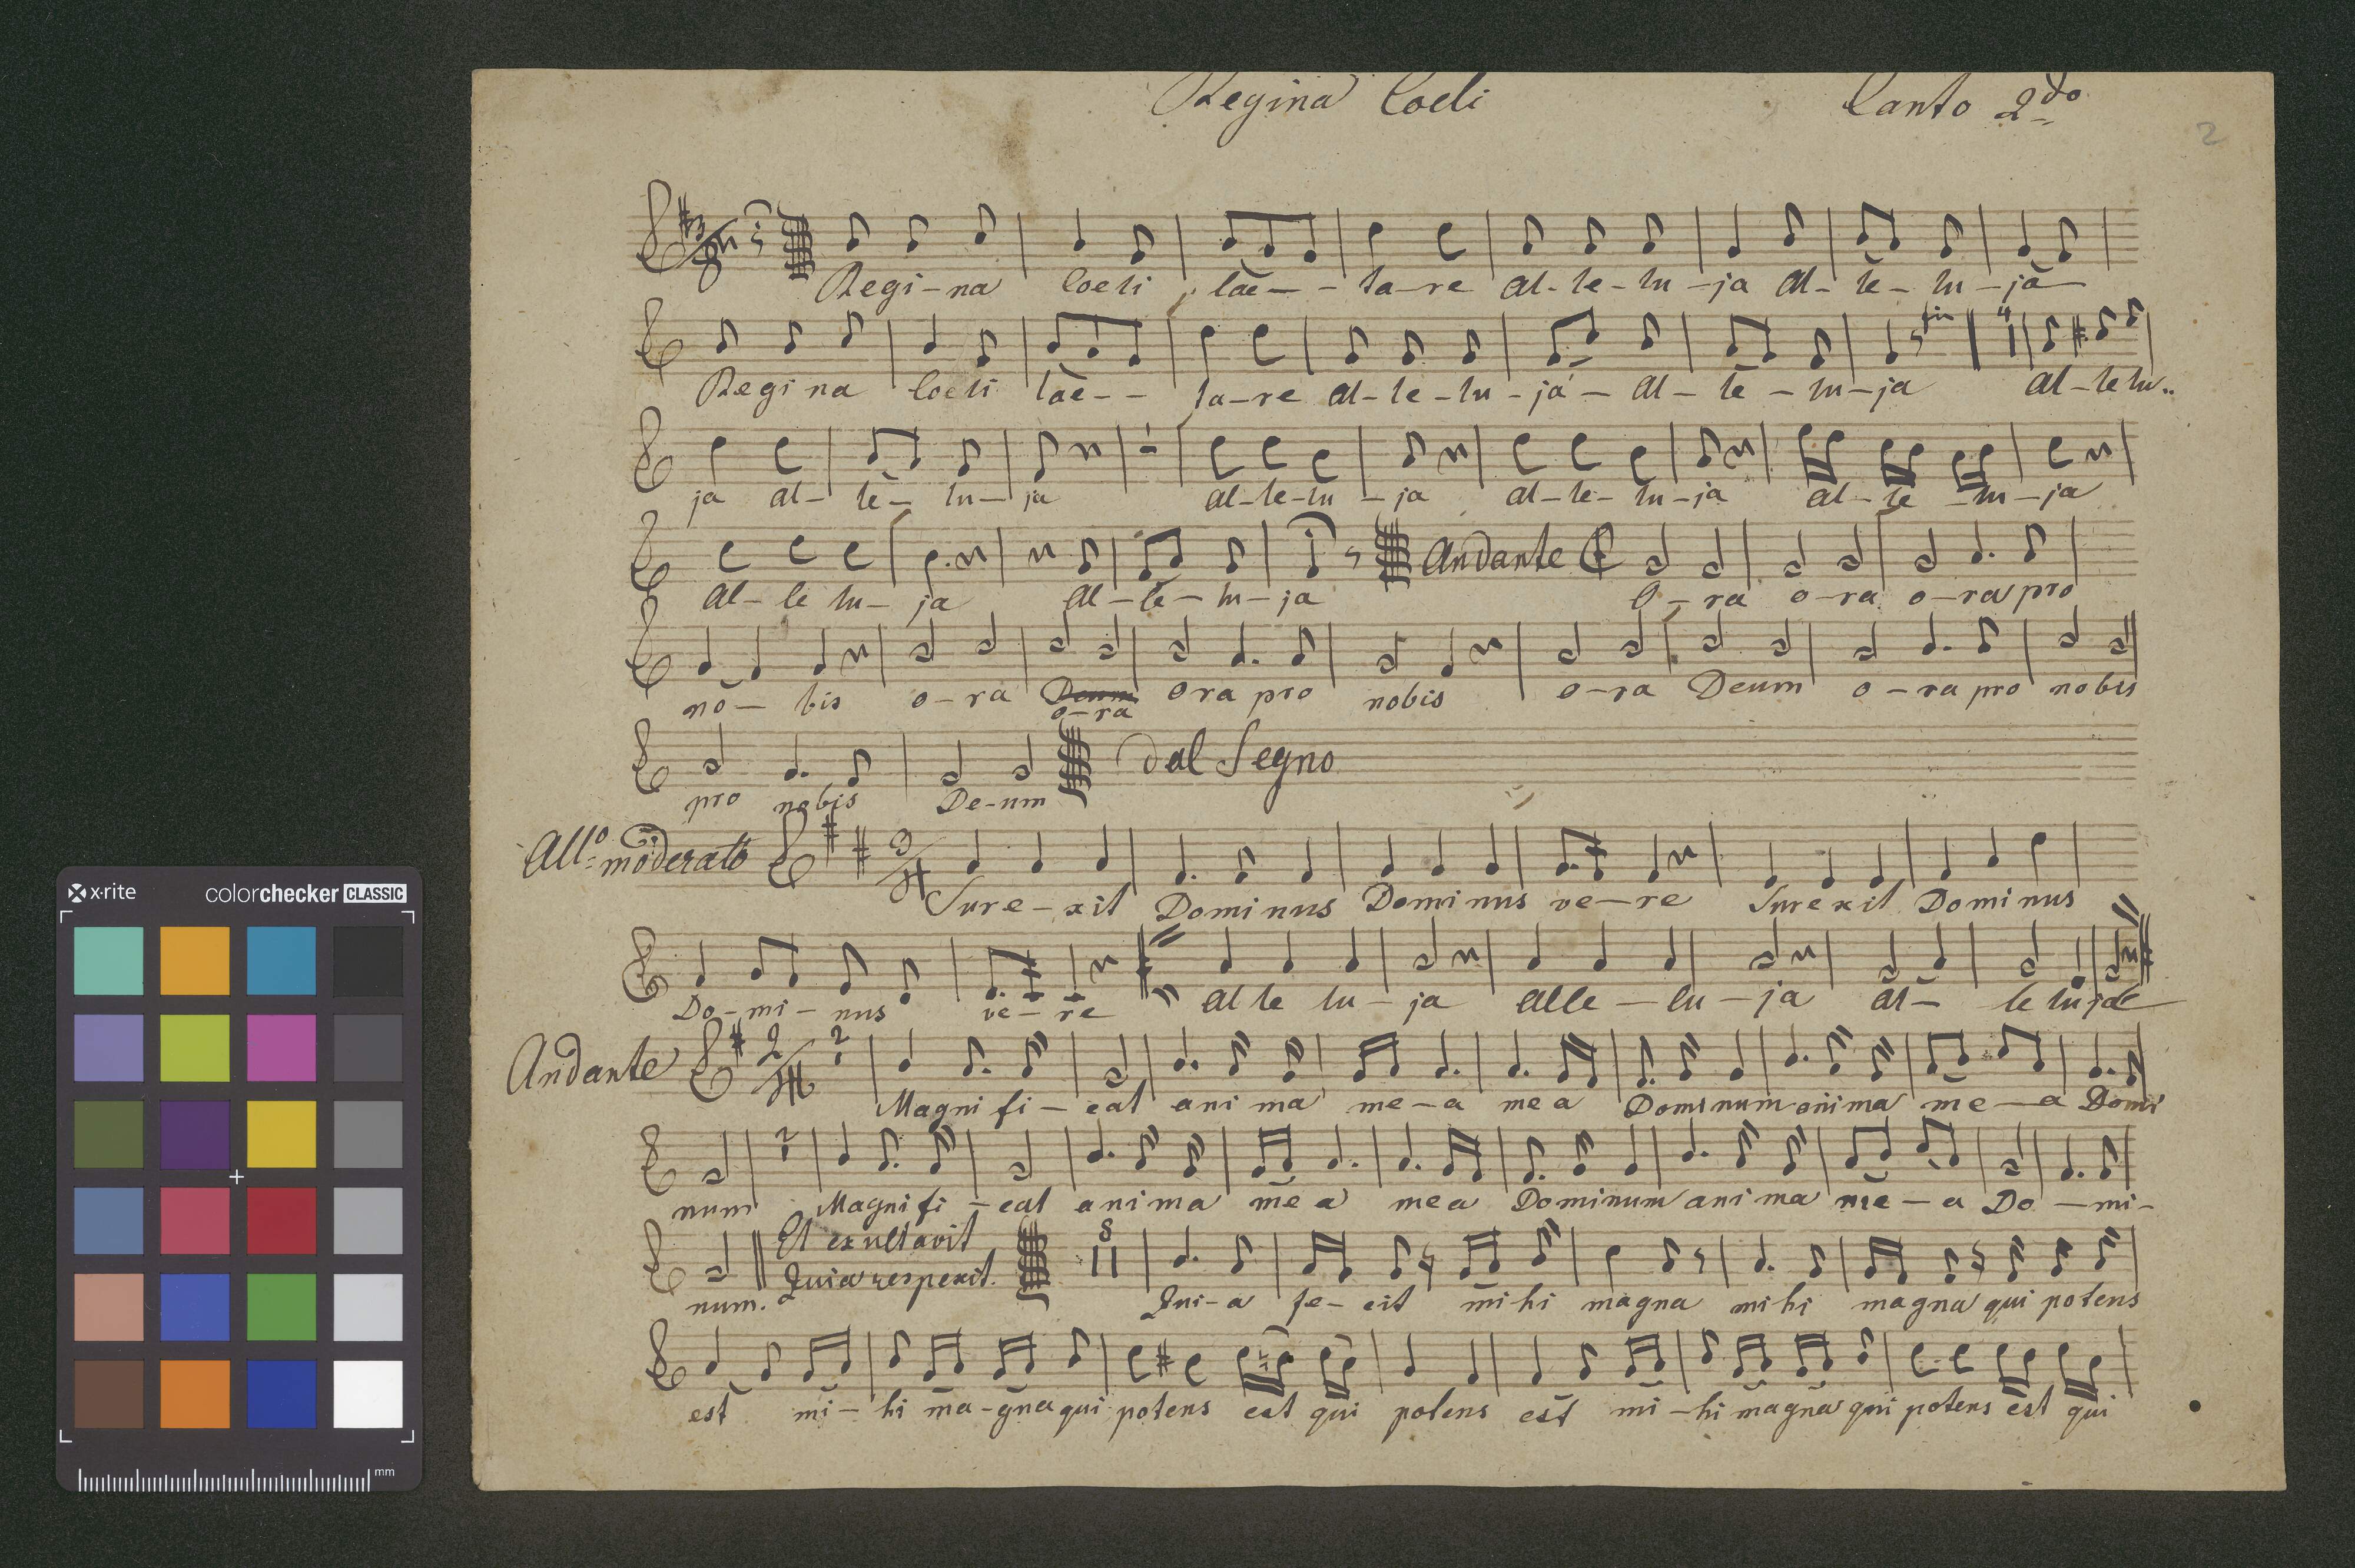 Regina Coeli Canto 2do
2
Regi-na Coeli læ-- ta-re Al-le-lu-ja Al-le-lu-ja
Regina Coeli læ-- ta-re Al-le-lu-ja-Al-le-lu-ja fin 4 Al-lelu..
ja al-le-lu-ja al-le-lu-ja al-le-lu-ja al-le-lu-ja
Al-le lu-ja Al-le-lu-ja Andante O-ra o-ra o-ra pro
no-bis o-ra Deum ora pro nobis o-ra Deum o-ra pro nobis
o-ra
pro nobis De-um dal Segno
All:o moderato 3/4 Sure-xit Dominus Dominus ve-re Surexit Dominus
Do-mi-nus ve-re al le lu-ja alle-lu-ja al-le luja
Andante 2/4 2 Magnifi-cat anima me-a mea Dominum anima me-a Domi
num Magnifi-cat anima mea mea Dominum anima me-a Do-mi-
num. Et exultavit 8 Qui-a fe-cit mihi magna mihi magna qui potens
Quia respexit.
est mi-hi ma-gna qui potens est qui potens est mi-hi magna qui potens est qui
x-rite colorchecker CLASSIC
mm